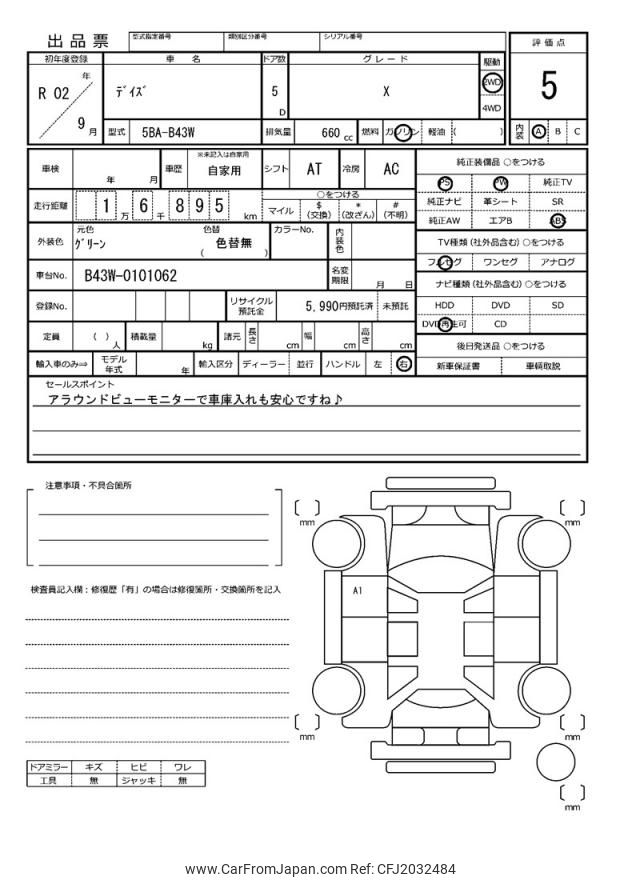 出品票 型式指定番号 類別区分番号 シリアル番号
評価点
初年度登録 車名 ドア数 グレード 駆動
年 2WD
R 02 ﾃﾞｲｽﾞ 5 X 5
D 4WD
9月 型式 5BA-B43W 排気量 660 cc 燃料 ガソリン 軽油 ( ) 内装 A B C
車検 年 月 車歴 ※未記入は自家用 自家用 シフト AT 冷房 AC 純正装備品 ○をつける
PS PW 純正TV
走行距離 1万 6千 895 km ○をつける 純正ナビ 革シート SR
マイル $(交換) *(改ざん) #(不明) 純正AW エアB ABS
外装色 元色 色替 カラーNo. 内装色 TV種類 (社外品含む) ○をつける
ｸﾞﾘｰﾝ ( 色替無 ) フルセグ ワンセグ アナログ
車台No. B43W-0101062 名変期限 月 日 ナビ種類 (社外品含む) ○をつける
登録No. リサイクル預託金 5,990円預託済 未預託 HDD DVD SD
DVD再生可 CD
定員 ( ) 人 積載量 kg 諸元 長さ cm 幅 cm 高さ cm 後日発送品 ○をつける
輸入車のみ⇒ モデル年式 年 輸入区分 ディーラー 並行 ハンドル 左 右 新車保証書 車輌取説
セールスポイント
アラウンドビューモニターで車庫入れも安心ですね♪
注意事項・不具合箇所
mm mm
検査員記入欄：修復歴「有」の場合は修復箇所・交換箇所を記入
A1
mm mm
ドアミラー キズ ヒビ ワレ
工具 無 ジャッキ 無
mm
www.CarFromJapan.com Ref: CFJ2032484